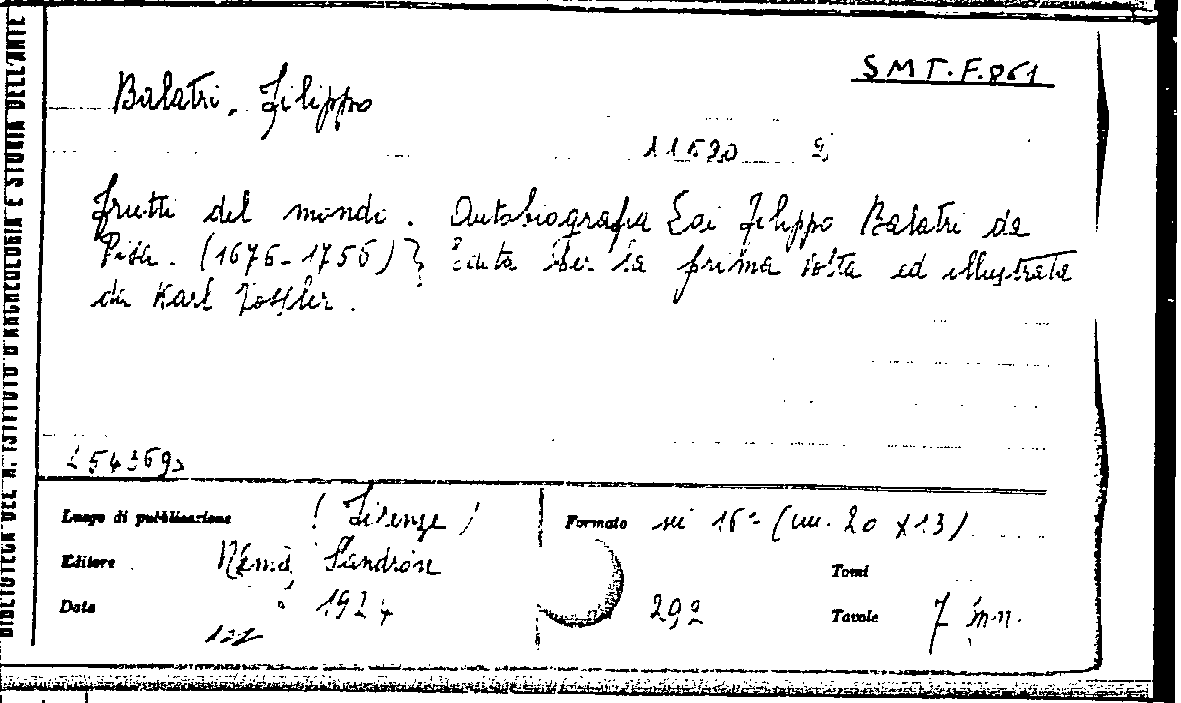 BIBLIOTECA DEL R. ISTITUTO D'ARCHEOLOGIA E STORIA DELL'ARTE
SMT.F.861
Balatri, Filippo
11590
Frutti del mondo. Autobiografia di Filippo Balatri da
Pisa. (1676-1756) Edita per la prima volta ed illustrata
da Karl Vossler.
54369
Luogo di pubblicazione (Firenze) Formato in 16° (cm. 20 x 13)
Editore Remo Sandron Tomi
Data 1924 292 Tavole 7 in n.
122